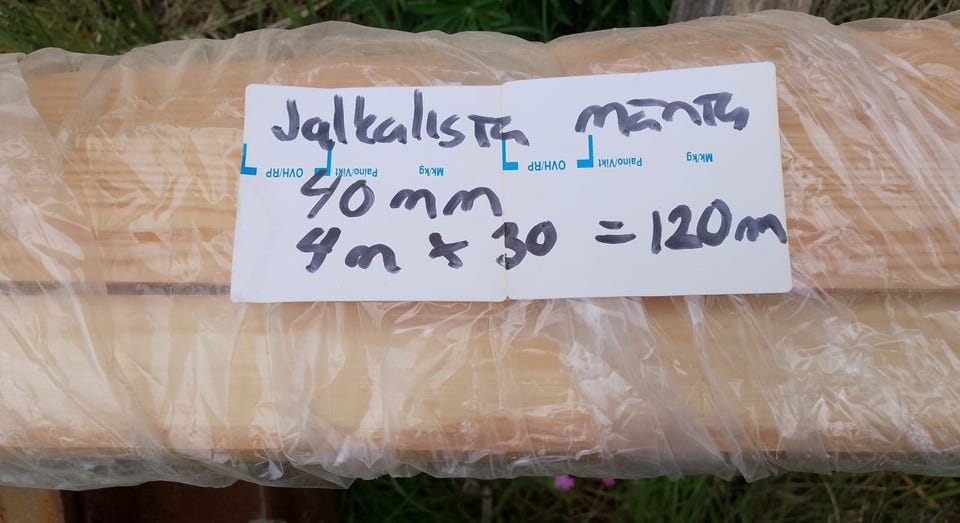 Jalkalista mänty
OVH/RP Paino/Vikt Mk/kg OVH/RP Paino/Vikt Mk/kg
40 mm
4m x 30 = 120m